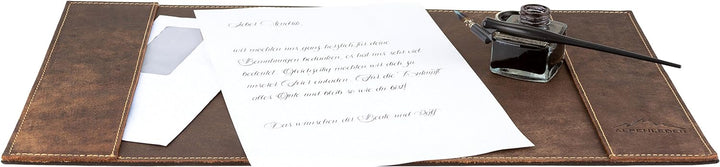 Lieber Markus,
wir möchten uns ganz herzlich für deine
Bemühungen bedanken, es hat uns sehr viel
bedeutet. Gleichzeitig möchten wir dich zu
unserer Feier einladen. Für die Zukunft
alles Gute und bleib so wie du bist!
Das wünschen dir Beate und Rolf
ALPENLEDER